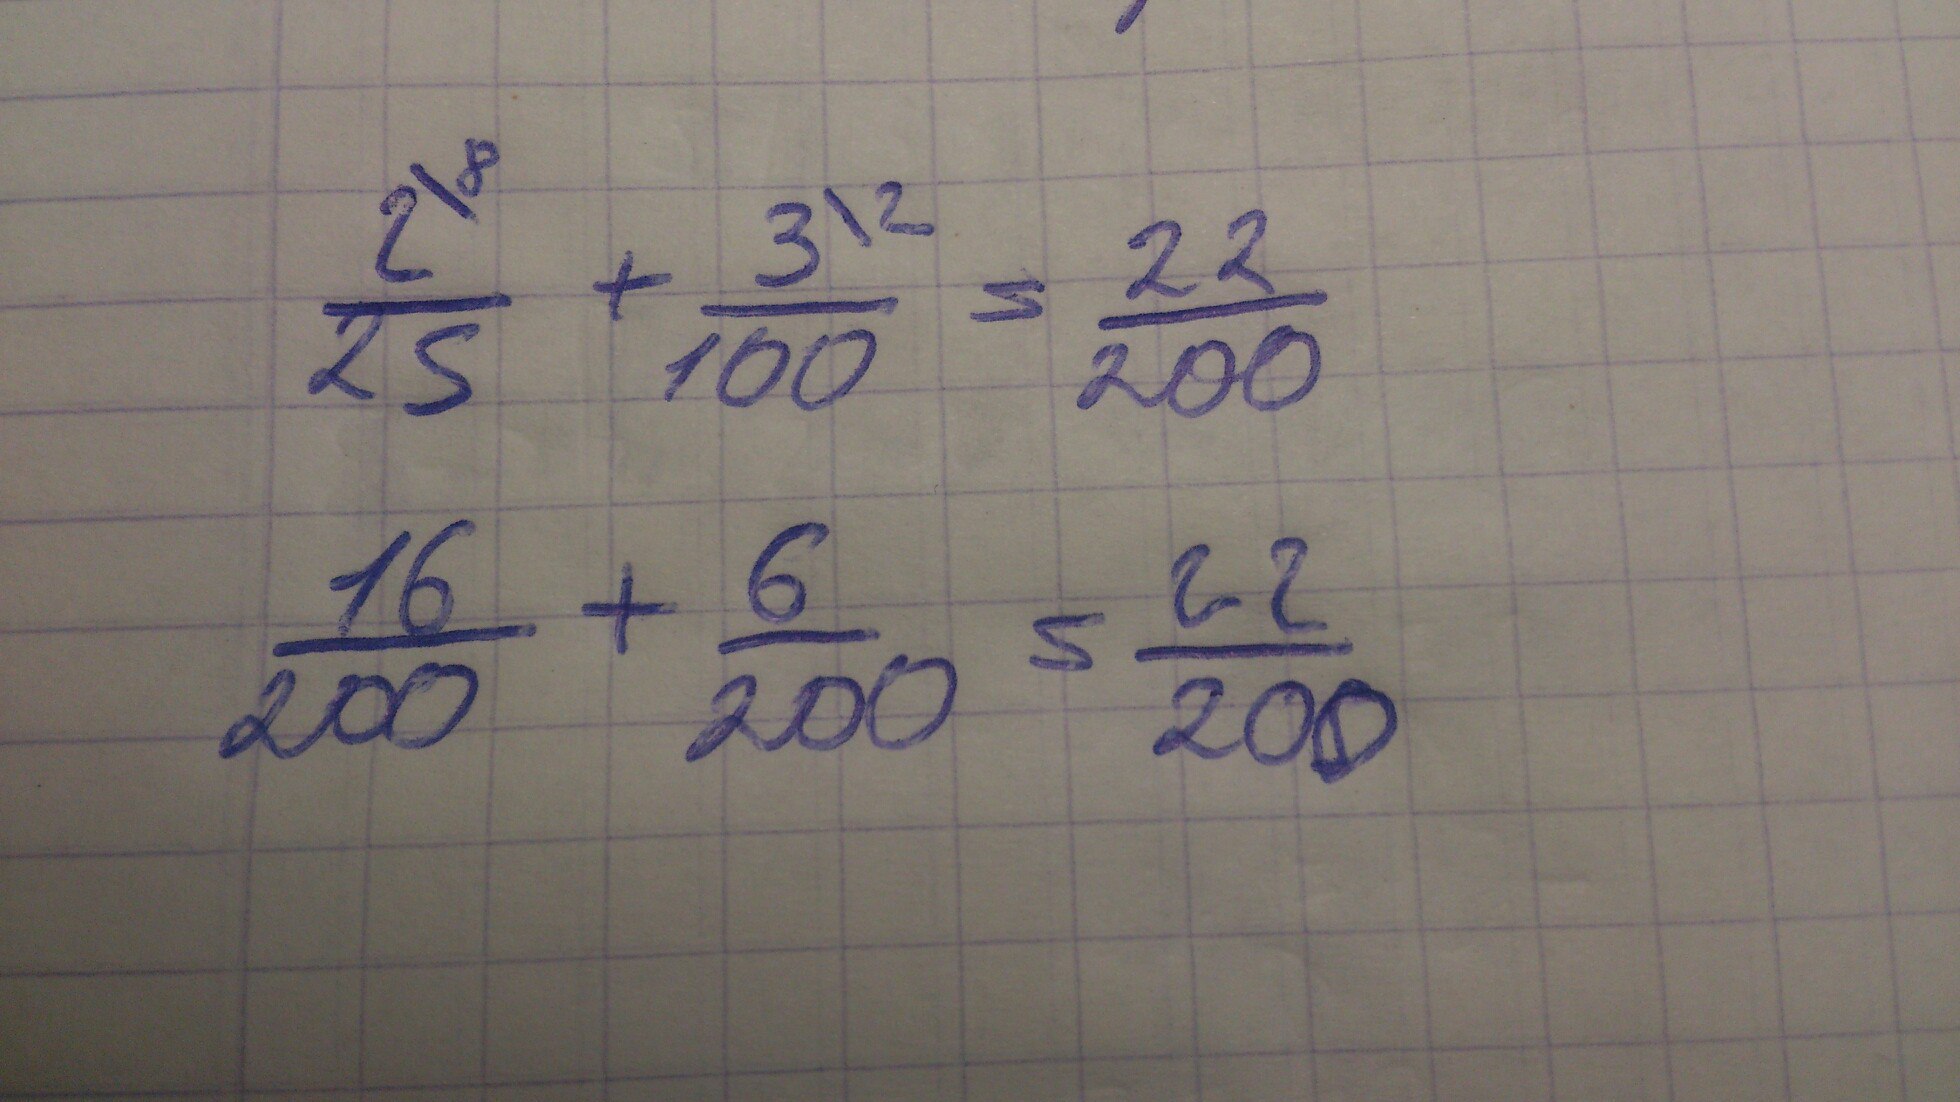 2\8/25 + 3\2/100 = 22/200
16/200 + 6/200 = 22/200